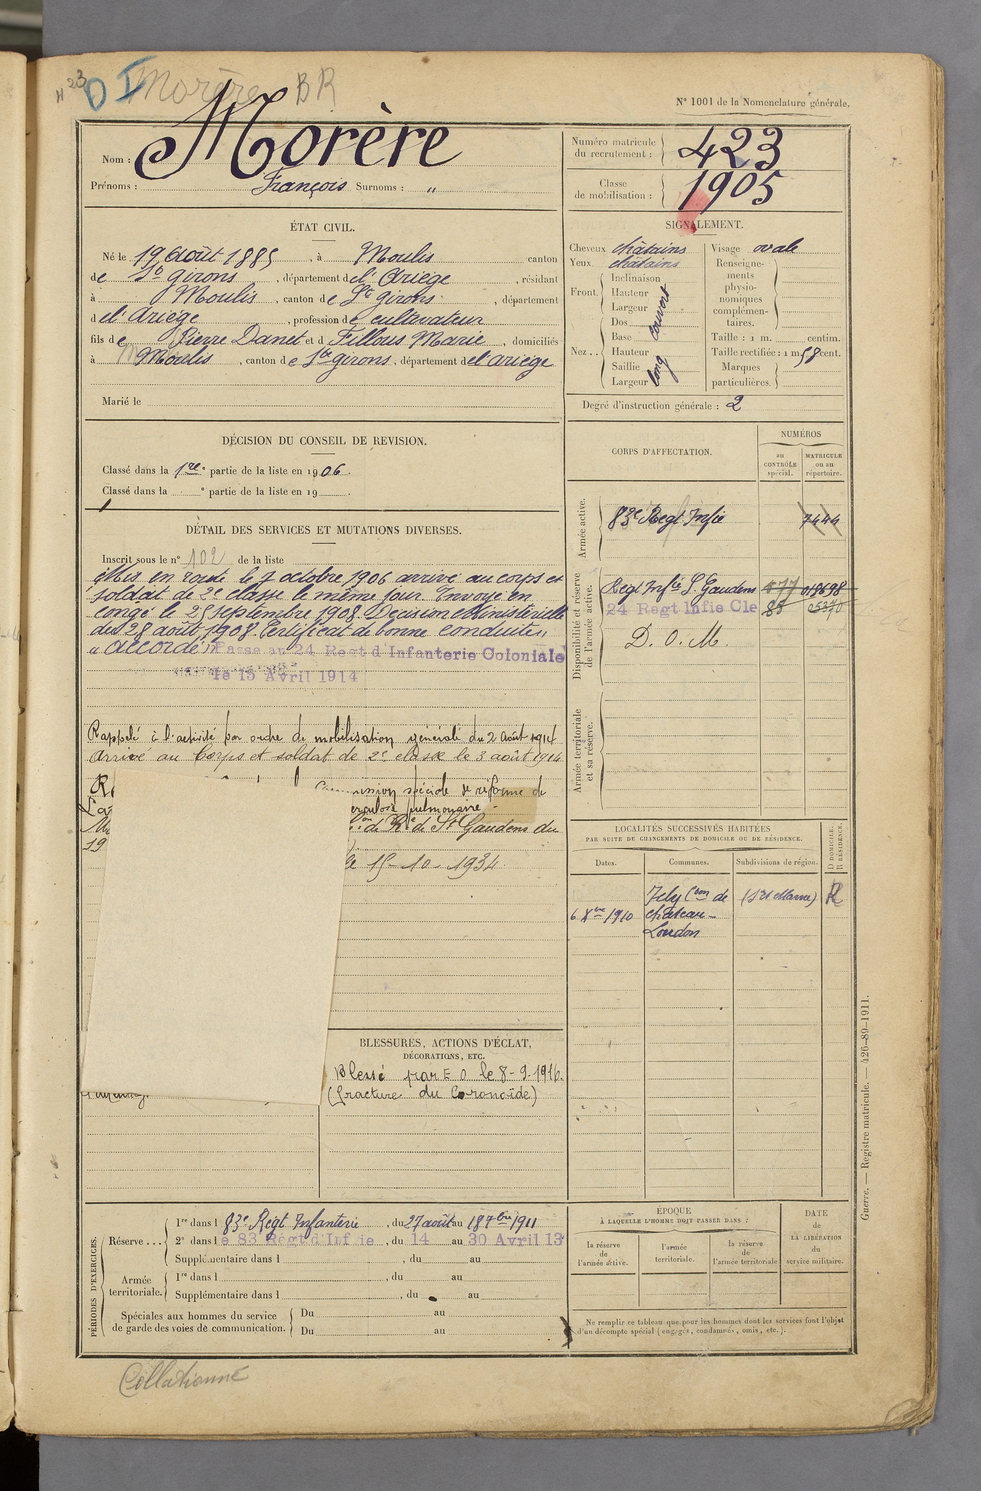 N° 1001 de la Nomenclature générale.
Morère BR
Nom : Morère
Prénoms : François Surnoms : "
Numéro matricule du recrutement : 423
Classe de mobilisation : 1905
ÉTAT CIVIL.
Né le 19 Août 1885, à Moulis canton
de St girons, département de l'Ariège, résidant
à Moulis, canton de St girons, département
d el Ariège, profession de cultivateur
fils de Pierre Danet et d Fillous Marie, domiciliés
à Moulis, canton de Ste girons, département de l'ariège
Marié le
SIGNALEMENT.
Cheveux châtains
Yeux châtains
Front. Inclinaison
Hauteur
Largeur
couvert
Nez.. Dos
Base
Hauteur
Saillie
Largeur
long
Visage ovale
Renseignements physionomiques complémentaires.
Taille : 1 m. centim.
Taille rectifiée : 1 m. 58 cent.
Marques particulières.
Degré d'instruction générale : 2
DÉCISION DU CONSEIL DE REVISION.
Classé dans la 1re partie de la liste en 1906.
Classé dans la ° partie de la liste en 19
DÉTAIL DES SERVICES ET MUTATIONS DIVERSES.
Inscrit sous le n° 102 de la liste
Mis en route le 7 octobre 1906 arrivé au corps et
soldat de 2e classe le même jour. Envoyé en
congé le 25 septembre 1908. Décision Ministérielle
du 28 août 1908. Certificat de bonne conduite "
" accordé " Passe au 24 Regt d Infanterie Coloniale
le 15 Avril 1914
Rappelé à l'activité par ordre de mobilisation générale du 2 août 1914
Arrivé au Corps et soldat de 2e classe le 3 août 1914
spéciale de réforme de
pulmonaire
de Re de St Gaudens du
19
le 15-10-1934
CORPS D'AFFECTATION.
NUMÉROS
au CONTRÔLE spécial.
MATRICULE ou au répertoire.
Armée active.
83e Regt Infie 7444
Disponibilité et réserve de l'armée active.
Regt Infie St Gaudens 477 019698
24 Regt Infie Cle 85
D. O. M.
Armée territoriale et sa réserve.
LOCALITÉS SUCCESSIVES HABITÉES
PAR SUITE DE CHANGEMENTS DE DOMICILE OU DE RÉSIDENCE.
Dates. Communes. Subdivisions de région. D DOMICILE. R RÉSIDENCE.
6 Xbre 1910 con de château-Landon R
BLESSURES, ACTIONS D'ÉCLAT,
DÉCORATIONS, ETC.
Blessé par E O le 8-9-1916.
(fracture du Coronoïde)
PÉRIODES D'EXERCICES.
Réserve... 1re dans l 83e Régt Infanterie, du 27 août au 18 7bre 1911
2e dans l e 83 Régt d'Infie, du 14 au 30 Avril 13
Supplémentaire dans l , du au
Armée territoriale. 1re dans l , du au
Supplémentaire dans l , du au
Spéciales aux hommes du service de garde des voies de communication. Du au
Du au
ÉPOQUE
À LAQUELLE L'HOMME DOIT PASSER DANS :
la réserve de l'armée active.
l'armée territoriale.
la réserve de l'armée territoriale
DATE de LA LIBÉRATION du service militaire.
Ne remplir ce tableau que pour les hommes dont les services font l'objet
d'un décompte spécial (engagés, condamnés, omis, etc.).
Guerre. — Registre matricule. — 426-89-1911.
Collationné